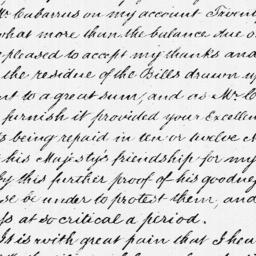 Mr Cabarrus on my account Twenty
what more than the balance due o
pleased to accept my thanks and
the residue of the Bills drawn u
nt to a great sum, and as Mr C
furnish it provided your Excellen
s being repaid in ten or twelve M
his Majesty's friendship for my
by this further proof of his goodne
se be under to protest them, and
ss at so critical a period.
It is with great pain that I hea